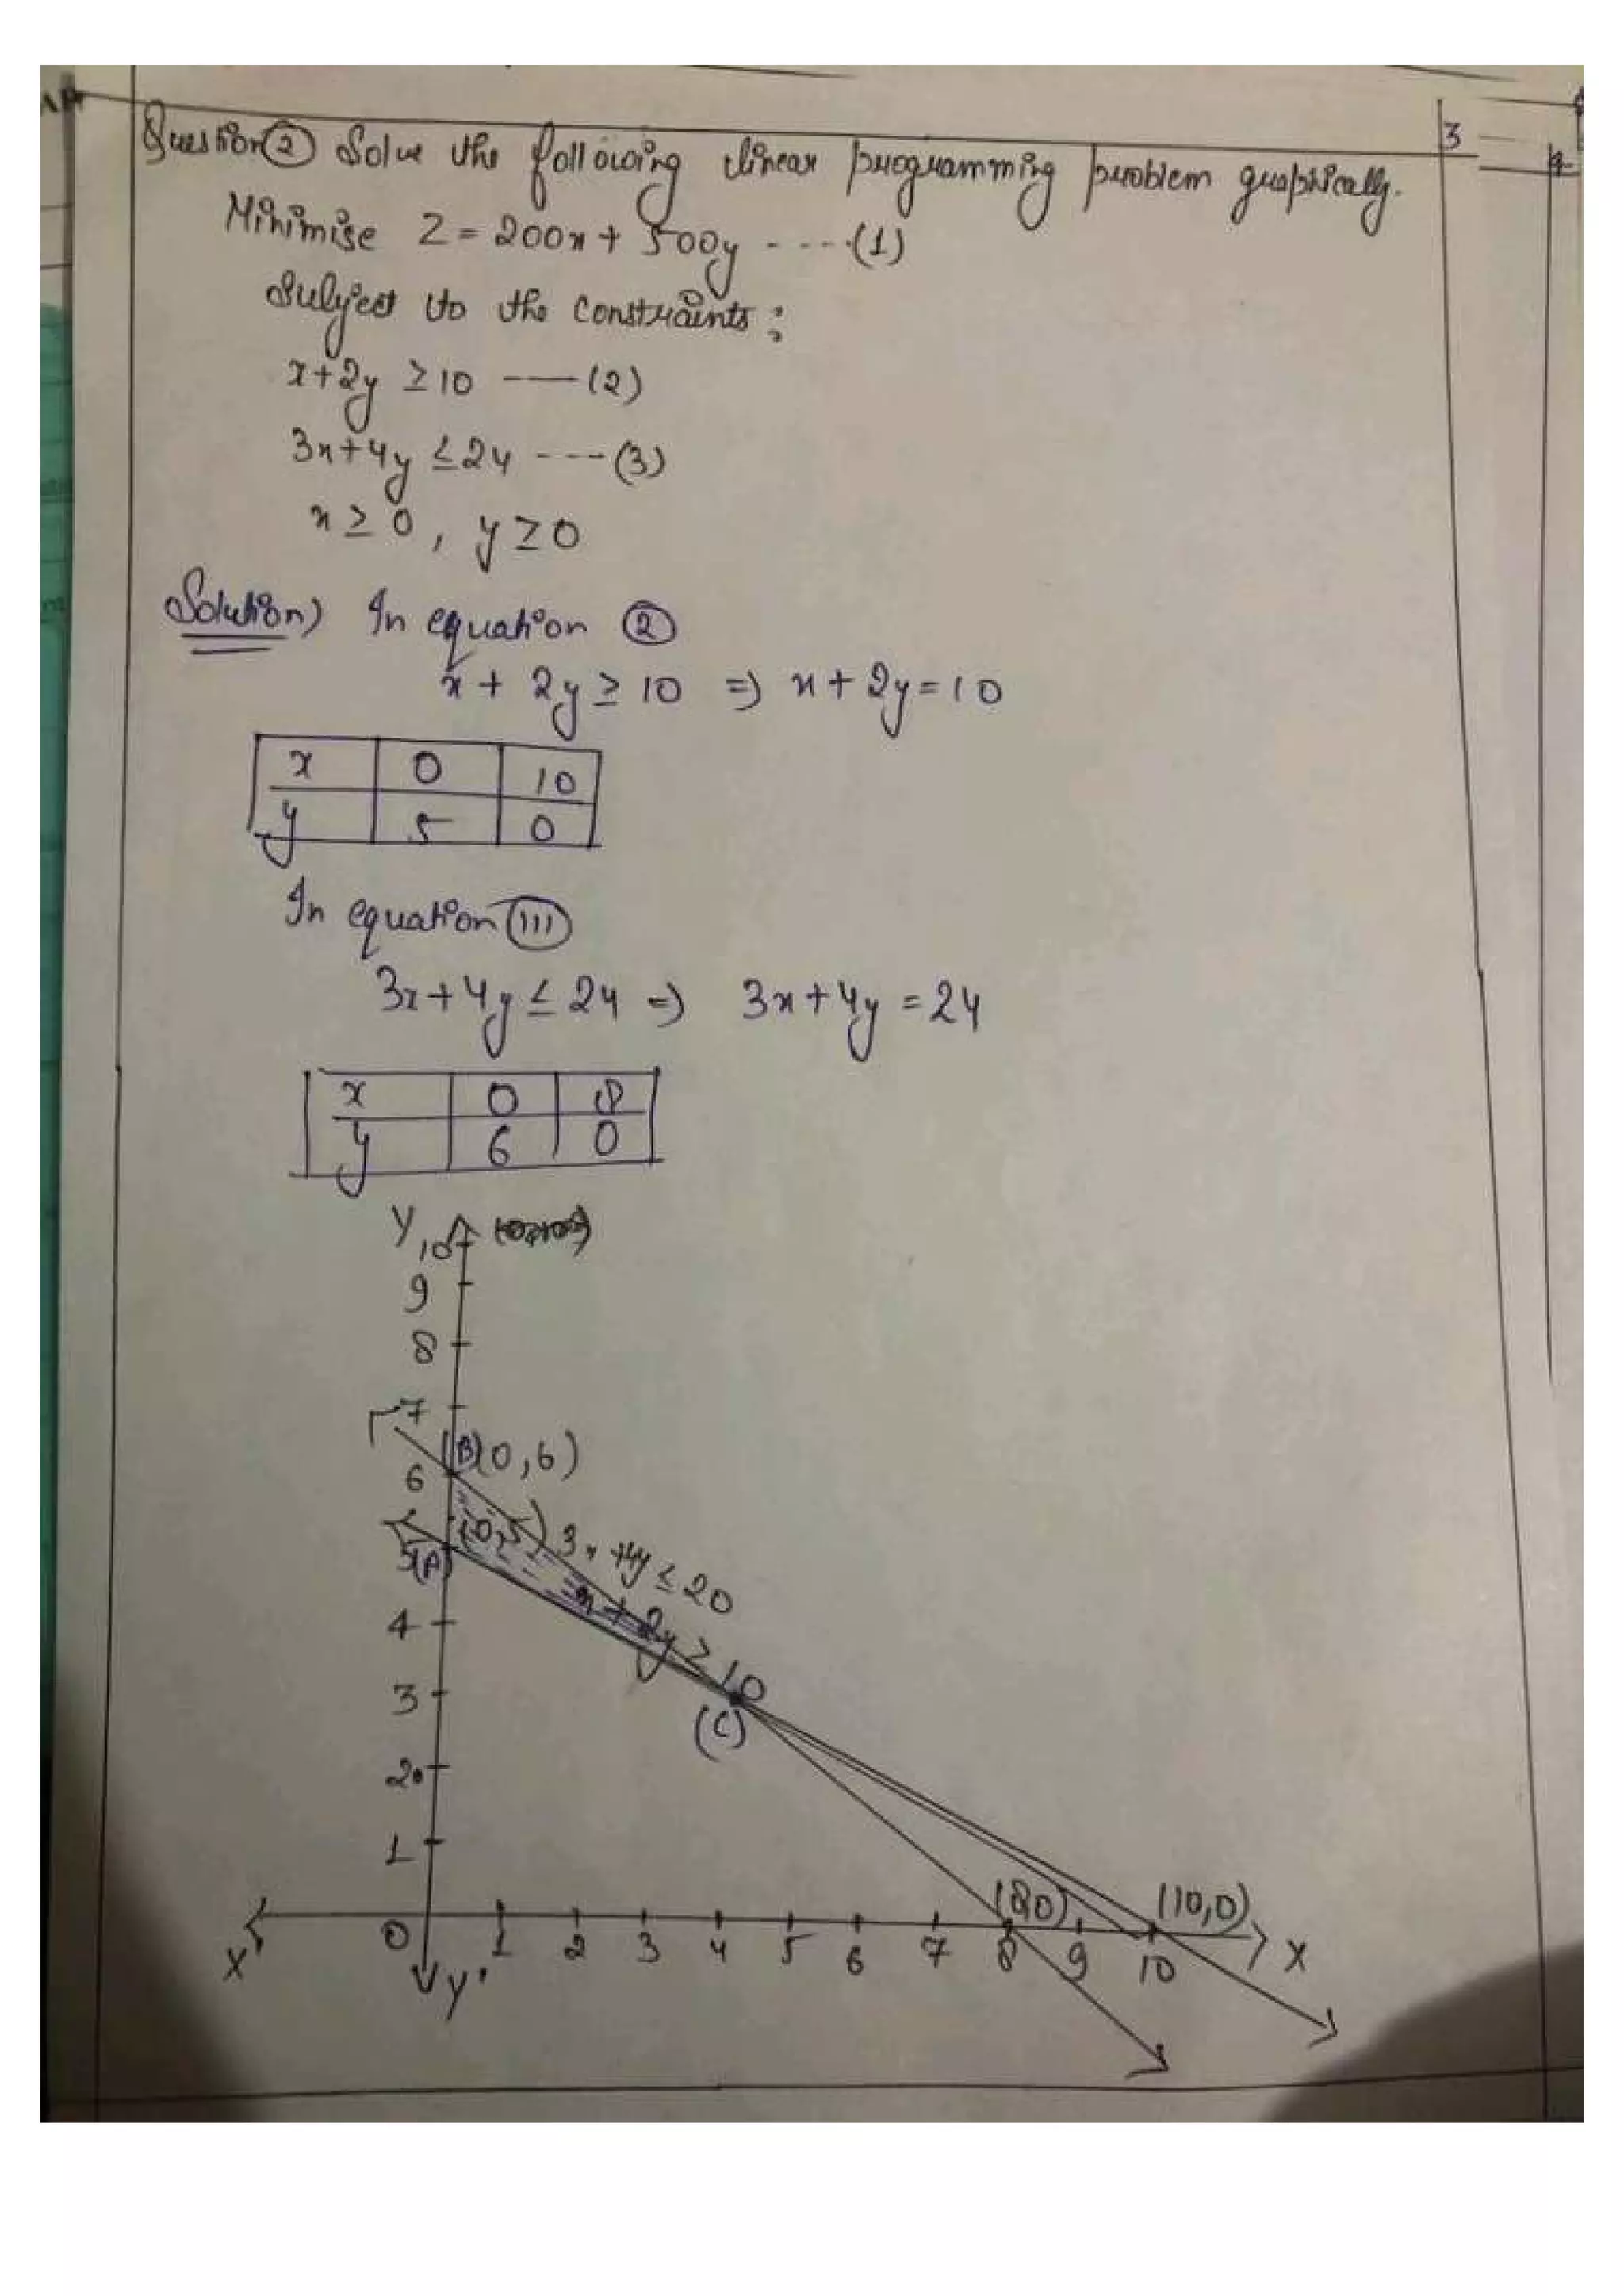 3
Question ② Solve the following linear programming problem graphically.
Minimise Z = 200x + 500y ----- (1)
Subject to the constraints :
x+2y ≥ 10 —— (2)
3x+4y ≤ 24 --- (3)
x ≥ 0 , y ≥ 0
Solution) In equation ②
x + 2y ≥ 10 => x + 2y = 10
x 0 10
y 5 0
In equation (III)
3x+4y ≤ 24 => 3x+4y = 24
x 0 8
y 6 0
Y
10
9
8
7
(B)(0,6)
6
(0,5) 3x+4y ≤ 20
5(A)
x+2y ≥ 10
4
3
(C)
2
1
(8,0) (10,0)
X' 0 1 2 3 4 5 6 7 8 9 10 X
Y'